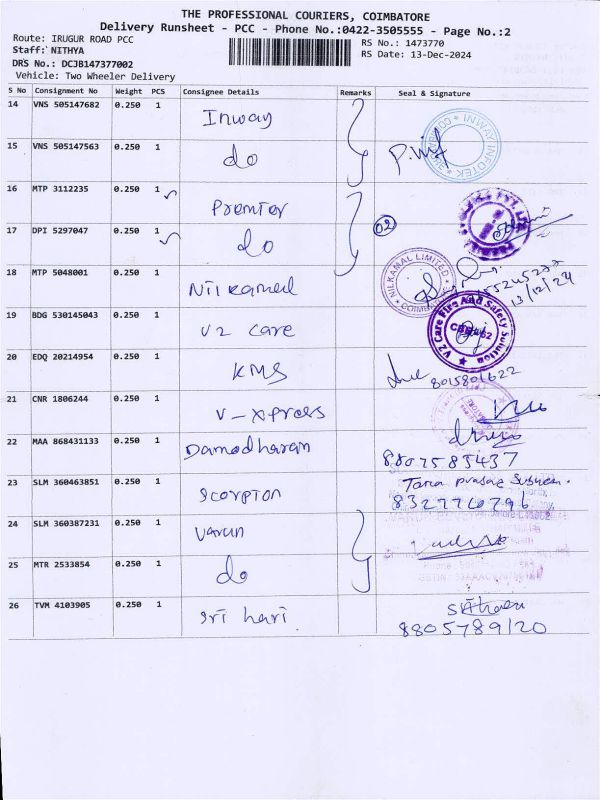 THE PROFESSIONAL COURIERS, COIMBATORE
Delivery Runsheet - PCC - Phone No.:0422-3505555 - Page No.:2
Route: IRUGUR ROAD PCC
RS No.: 1473770
Staff: NITHYA
RS Date: 13-Dec-2024
DRS No.: DCJB147377002
Vehicle: Two Wheeler Delivery
S No Consignment No Weight PCS Consignee Details Remarks Seal & Signature
14 VNS 505147682 0.250 1 Inway
15 VNS 505147563 0.250 1 do INWAY INFOTEK
16 MTP 3112235 0.250 1 Premier
17 DPI 5297047 0.250 1 do 02
18 MTP 5048001 0.250 1 Nilkamal NILKAMAL LIMITED
13/12/24
19 BDG 530145043 0.250 1 V2 care V2 Care Fire And Safety Solution
20 EDQ 20214954 0.250 1 KMS 8015801622
21 CNR 1806244 0.250 1 V-xpress
22 MAA 868431133 0.250 1 Damodharan 8807583437
23 SLM 360463851 0.250 1 Scorpion
8327760796
24 SLM 360387231 0.250 1 Varun
25 MTR 2533854 0.250 1 do
26 TVM 4103905 0.250 1 Sri hari
8805789120